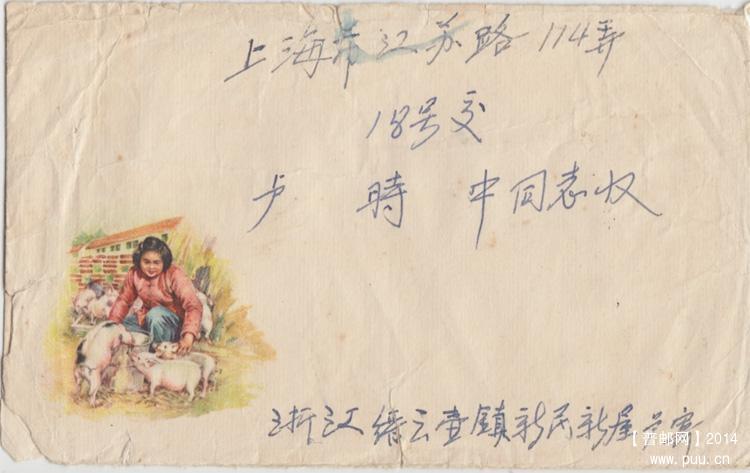 上海市江苏路114弄
18号交
卢時中同志收
浙江缙云壶鎮新民新屋
【普邮网】2014
www.puu.cn